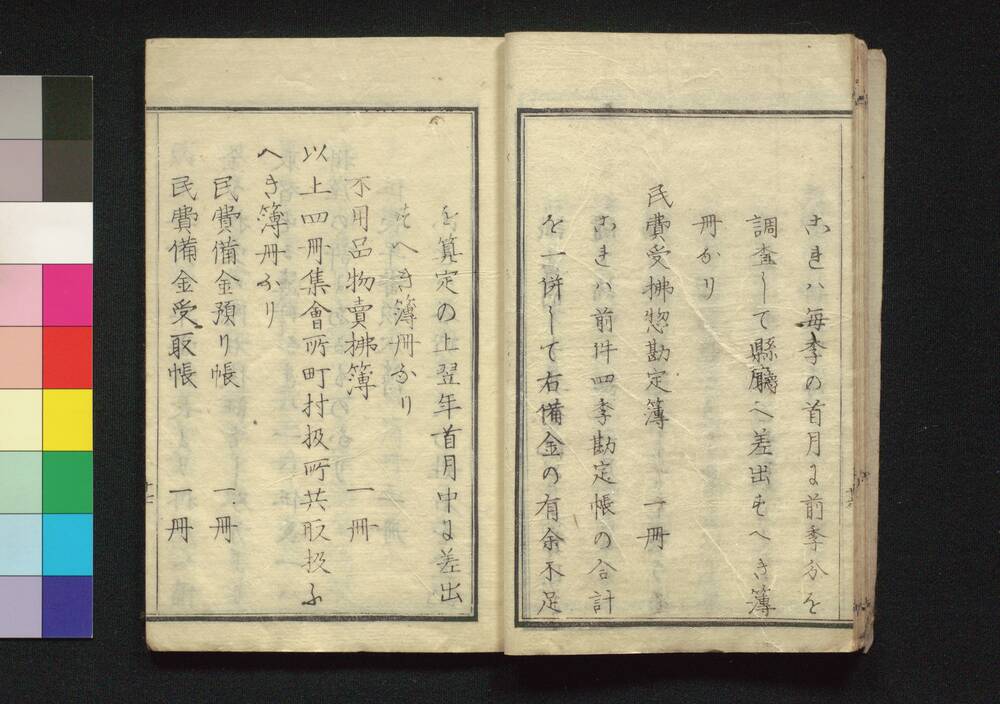 これハ毎季の首月に前季分を
調査して縣廳へ差出すへき簿
冊なり
民費受拂惣勘定簿　一冊
これハ前件四季勘定帳の合計
を一併して右備金の有余不足
を算定の上翌年首月中に差出
すへき簿冊なり
不用品物賣拂簿　一冊
以上四冊集會所町村扱所共取扱ふ
へき簿冊なり
民費備金預り帳　一冊
民費備金受取帳　一冊